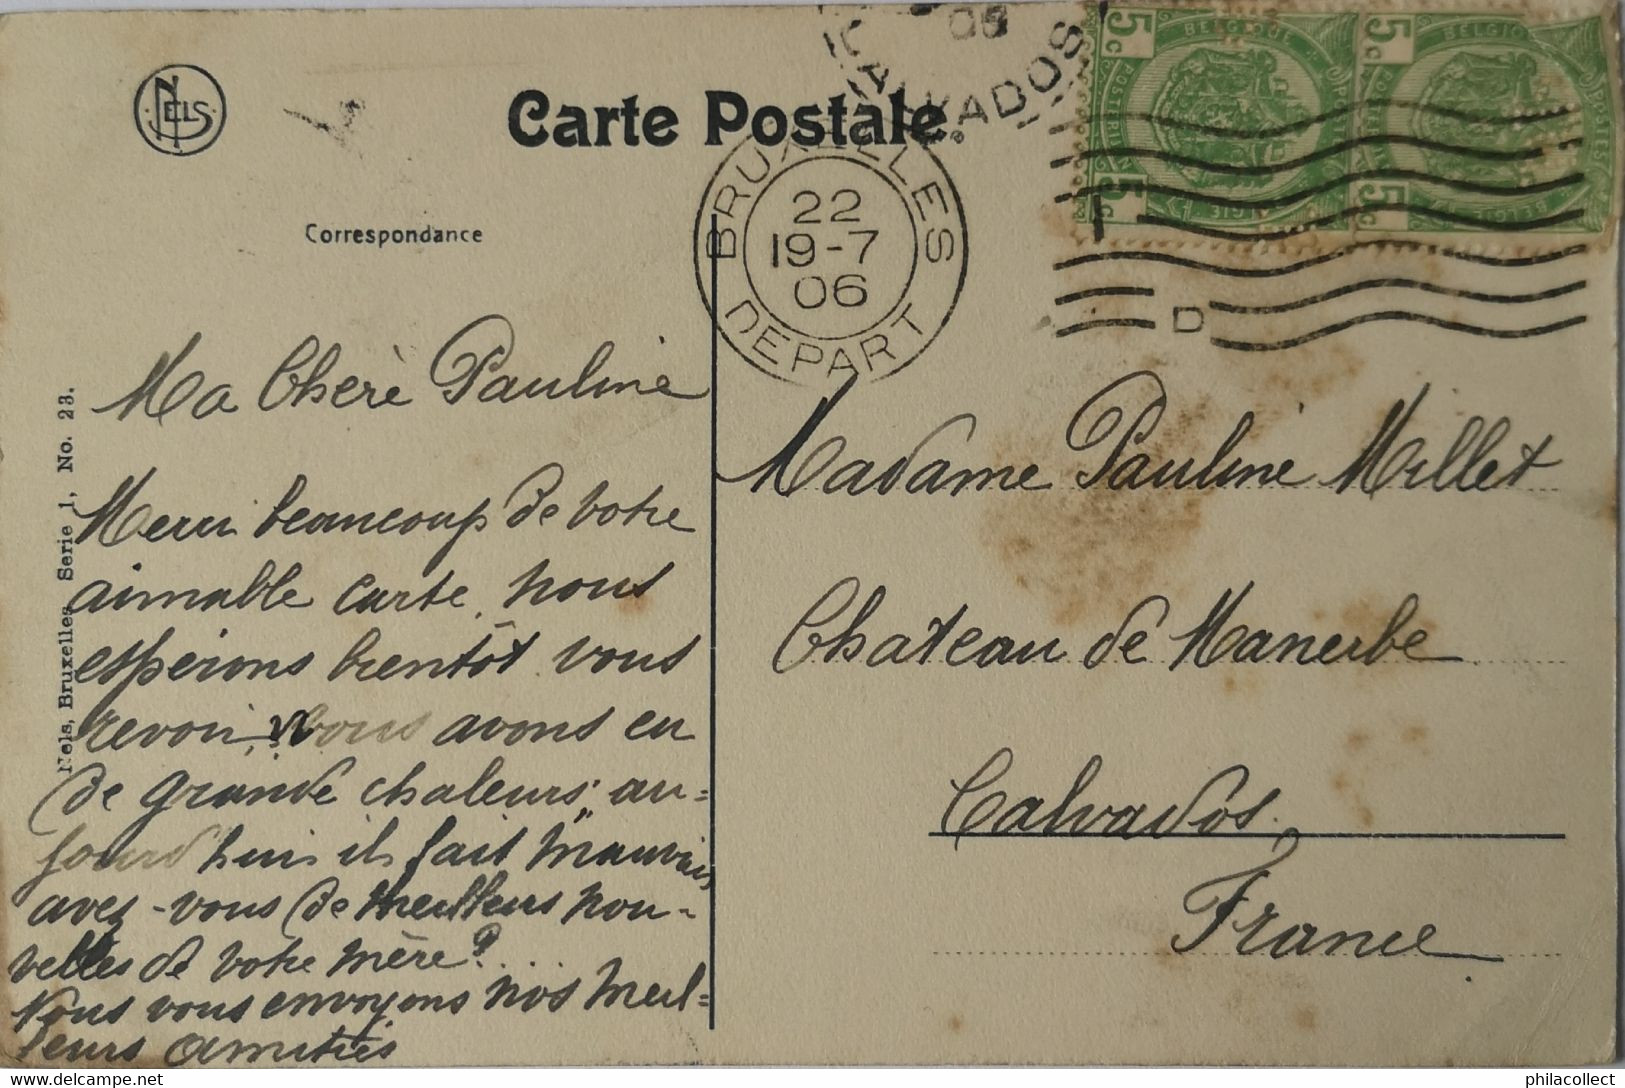 NELS
Carte Postale.
Correspondance
CALVADOS
06
BRUXELLES
22
19-7
06
DEPART
D
5c BELGIQUE POSTERIJEN BELGIE POSTES 5c
5c BELGIQUE POSTERIJEN BELGIE POSTES 5c
Nels, Bruxelles Serie 1, No. 23.
Ma Chère Pauline
Merci beaucoup de votre
aimable carte, nous
espérons bientôt vous
revoir, nous avons eu
de grande chaleurs, au=
jourd'hui il fait mauvais
avez-vous de meilleurs nou-
velles de votre mère?....
Nous vous envoyons nos meil=
leurs amitiés
Madame Pauline Millet
Château de Manerbe
Calvados.
France
philacollect